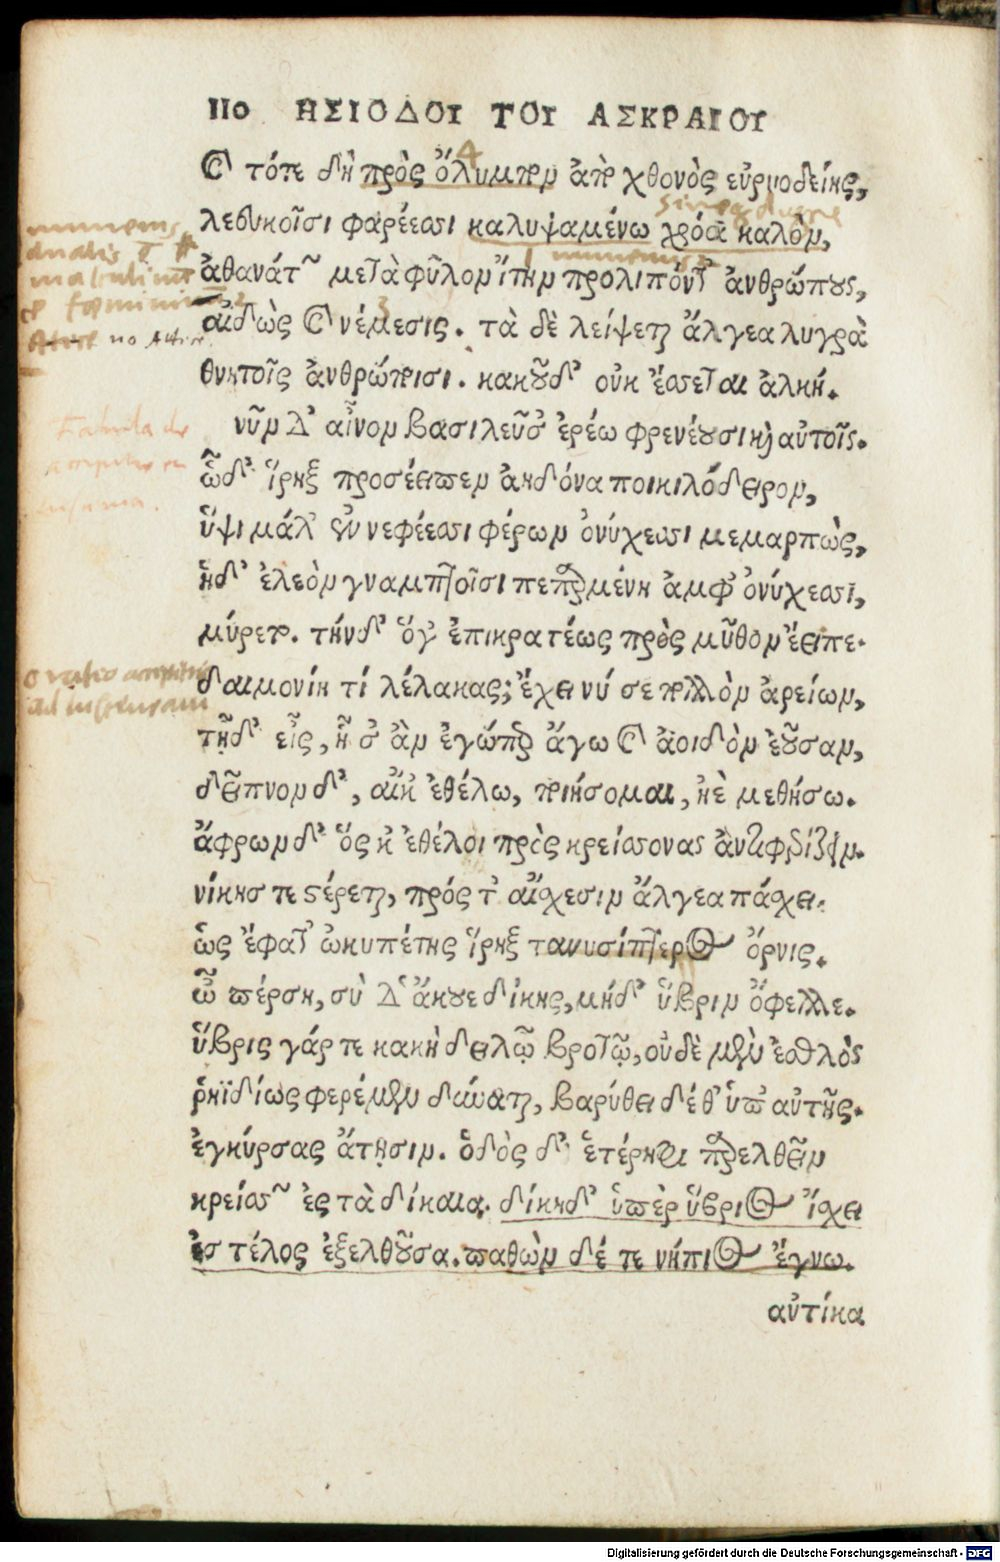 110 ΗΣΙΟΔΟΥ ΤΟΥ ΑΣΚΡΑΙΟΥ
καὶ τότε δὴ πρὸς ὄλυμπον ἀπὸ χθονὸς εὐρυοδείης,
λευκοῖσι φαρέεσσι καλυψαμένω χρόα καλὸν,
ἀθανάτων μετὰ φῦλον ἴτην προλιπόντ' ἀνθρώπους,
αἰδὼς καὶ νέμεσις. τὰ δὲ λείψεται ἄλγεα λυγρὰ
θνητοῖς ἀνθρώποισι. κακοῦ δ' οὐκ ἔσσεται ἀλκή.
νῦν δ' αἶνον βασιλεῦσ' ἐρέω φρενέουσι καὶ αὐτοῖς.
ὧδ' ἴρηξ προσέειπεν ἀηδόνα ποικιλόδειρον,
ὕψι μάλ' ἐν νεφέεσσι φέρων ὀνύχεσσι μεμαρπὼς,
ἡ δ' ἐλεὸν γναμπτοῖσι πεπαρμένη ἀμφ' ὀνύχεσσι,
μύρετο. τήνδ' ὅγ' ἐπικρατέως πρὸς μῦθον ἔειπε.
δαιμονίη τί λέλακας; ἔχει νύ σε πολλὸν ἀρείων,
τῇδ' εἶς, ᾗ σ' ἂν ἐγώπερ ἄγω καὶ ἀοιδὸν ἐοῦσαν,
δεῖπνον δ', αἴκ' ἐθέλω, ποιήσομαι, ἠὲ μεθήσω.
ἄφρων δ' ὅς κ' ἐθέλοι πρὸς κρείσσονας ἀντιφερίζειν.
νίκης τε στέρεται, πρός τ' αἴσχεσιν ἄλγεα πάσχει.
ὣς ἔφατ' ὠκυπέτης ἴρηξ τανυσίπτερος ὄρνις.
ὦ πέρση, σὺ δ' ἄκουε δίκης, μήδ' ὕβριν ὄφελλε.
ὕβρις γάρ τε κακὴ δειλῷ βροτῷ, οὐδὲ μὲν ἐσθλὸς
ῥηϊδίως φερέμεν δύναται, βαρύθει δέ θ' ὑπ' αὐτῆς.
ἐγκύρσας ἄτησιν. ὁδὸς δ' ἑτέρηφι παρελθεῖν
κρείσσων ἐς τὰ δίκαια. δίκη δ' ὑπὲρ ὕβριος ἴσχει
ἐς τέλος ἐξελθοῦσα. παθὼν δέ τε νήπιος ἔγνω.
αὐτίκα
Digitalisierung gefördert durch die Deutsche Forschungsgemeinschaft - DFG